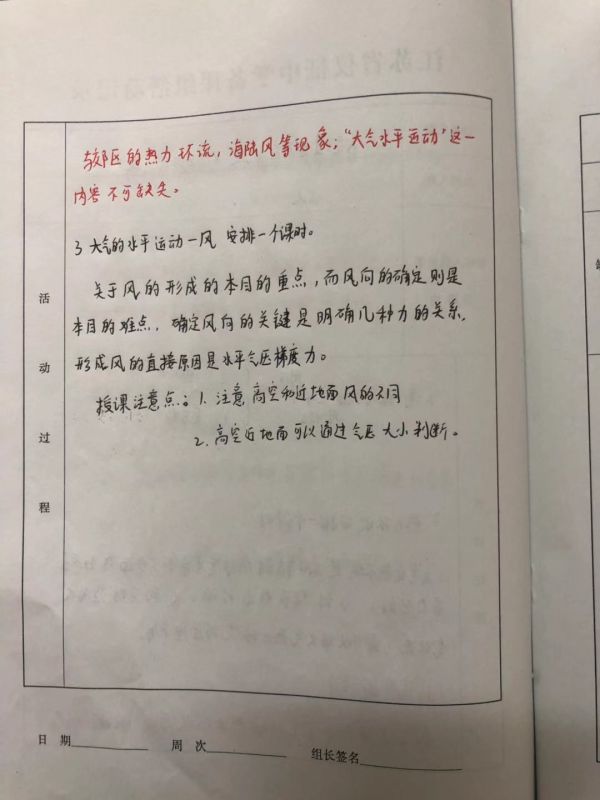 与郊区的热力环流，海陆风等现象；“大气水平运动”这一
内容不可缺失。
3 大气的水平运动—风 安排一个课时。
关于风的形成的本目的重点，而风向的确定则是
本目的难点，确定风向的关键是明确几种力的关系，
形成风的直接原因是水平气压梯度力。
授课注意点：1. 注意高空和近地面风的不同
2. 高空近地面可以通过气压大小判断。
活
动
过
程
日 期
周 次
组长签名